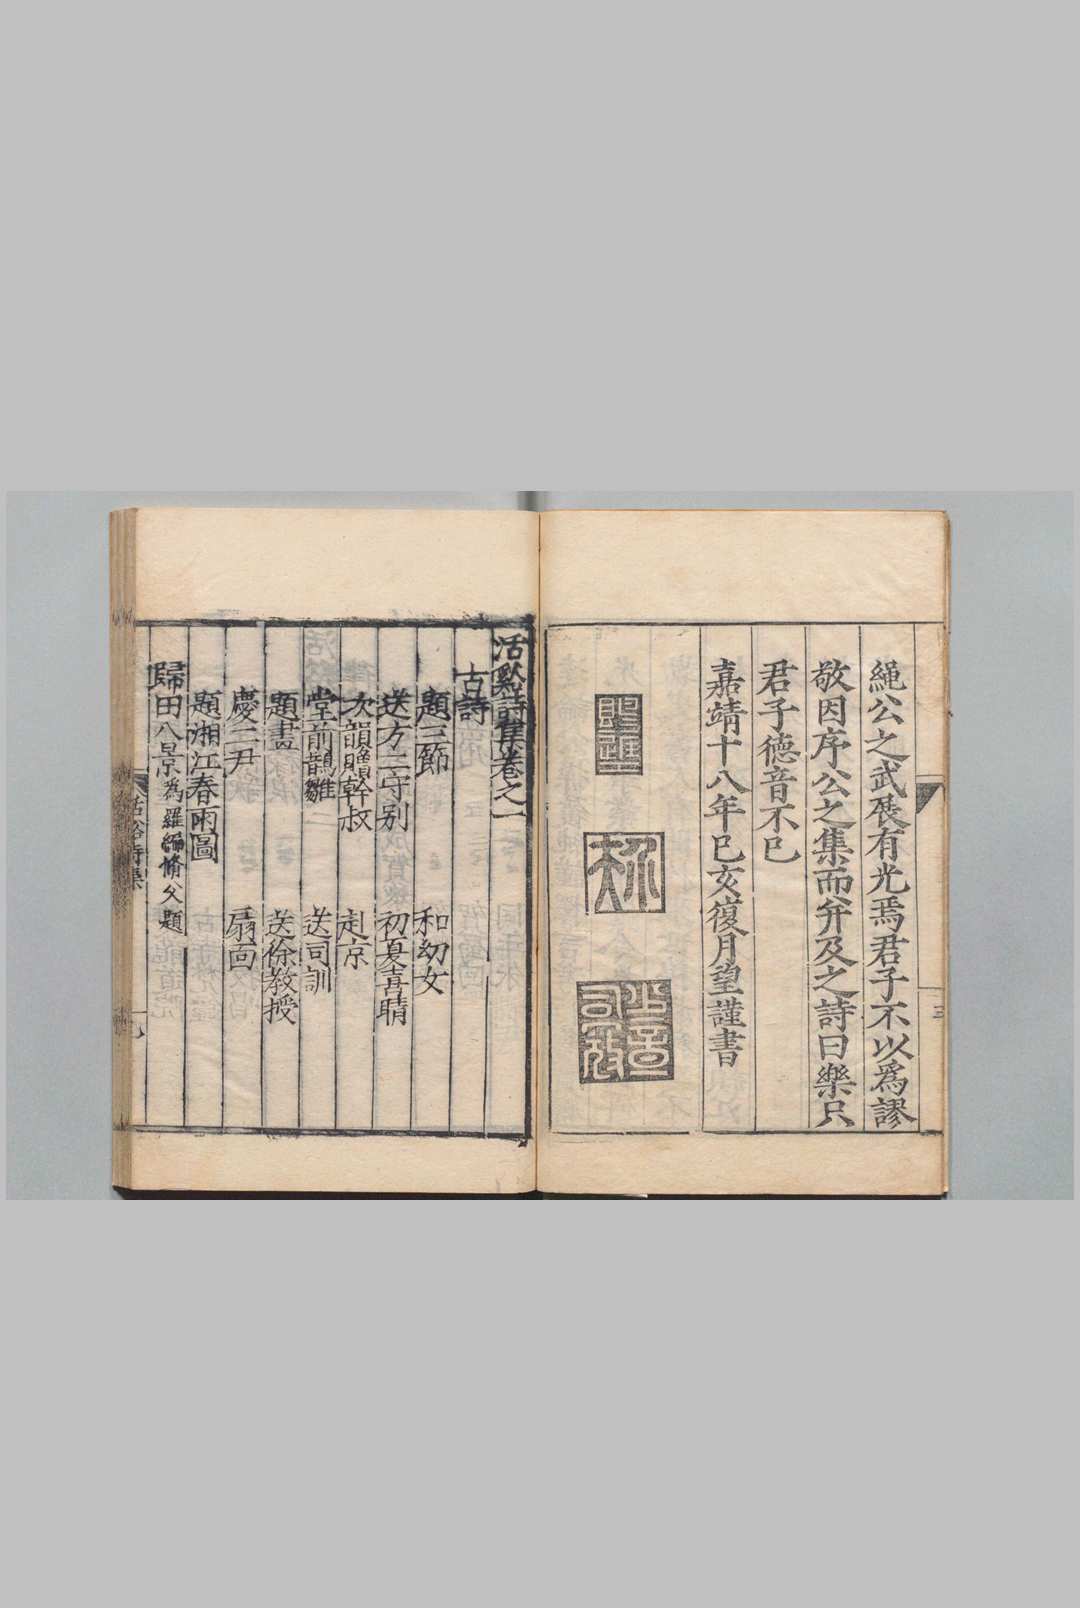 繩公之武展有光焉君子不以為謬
敬因序公之集而并及之詩曰樂只
君子德音不已
嘉靖十八年已亥復月望謹書
三
活谿詩集卷之一
古詩
題三節 和幼女
送方三守别 初夏喜晴
次韻 幹叔 赴京
堂前鵲雛二 送司訓
題畫 送徐教授
慶二尹 扇面
題湘江春雨圖
歸田八景為羅編脩父題